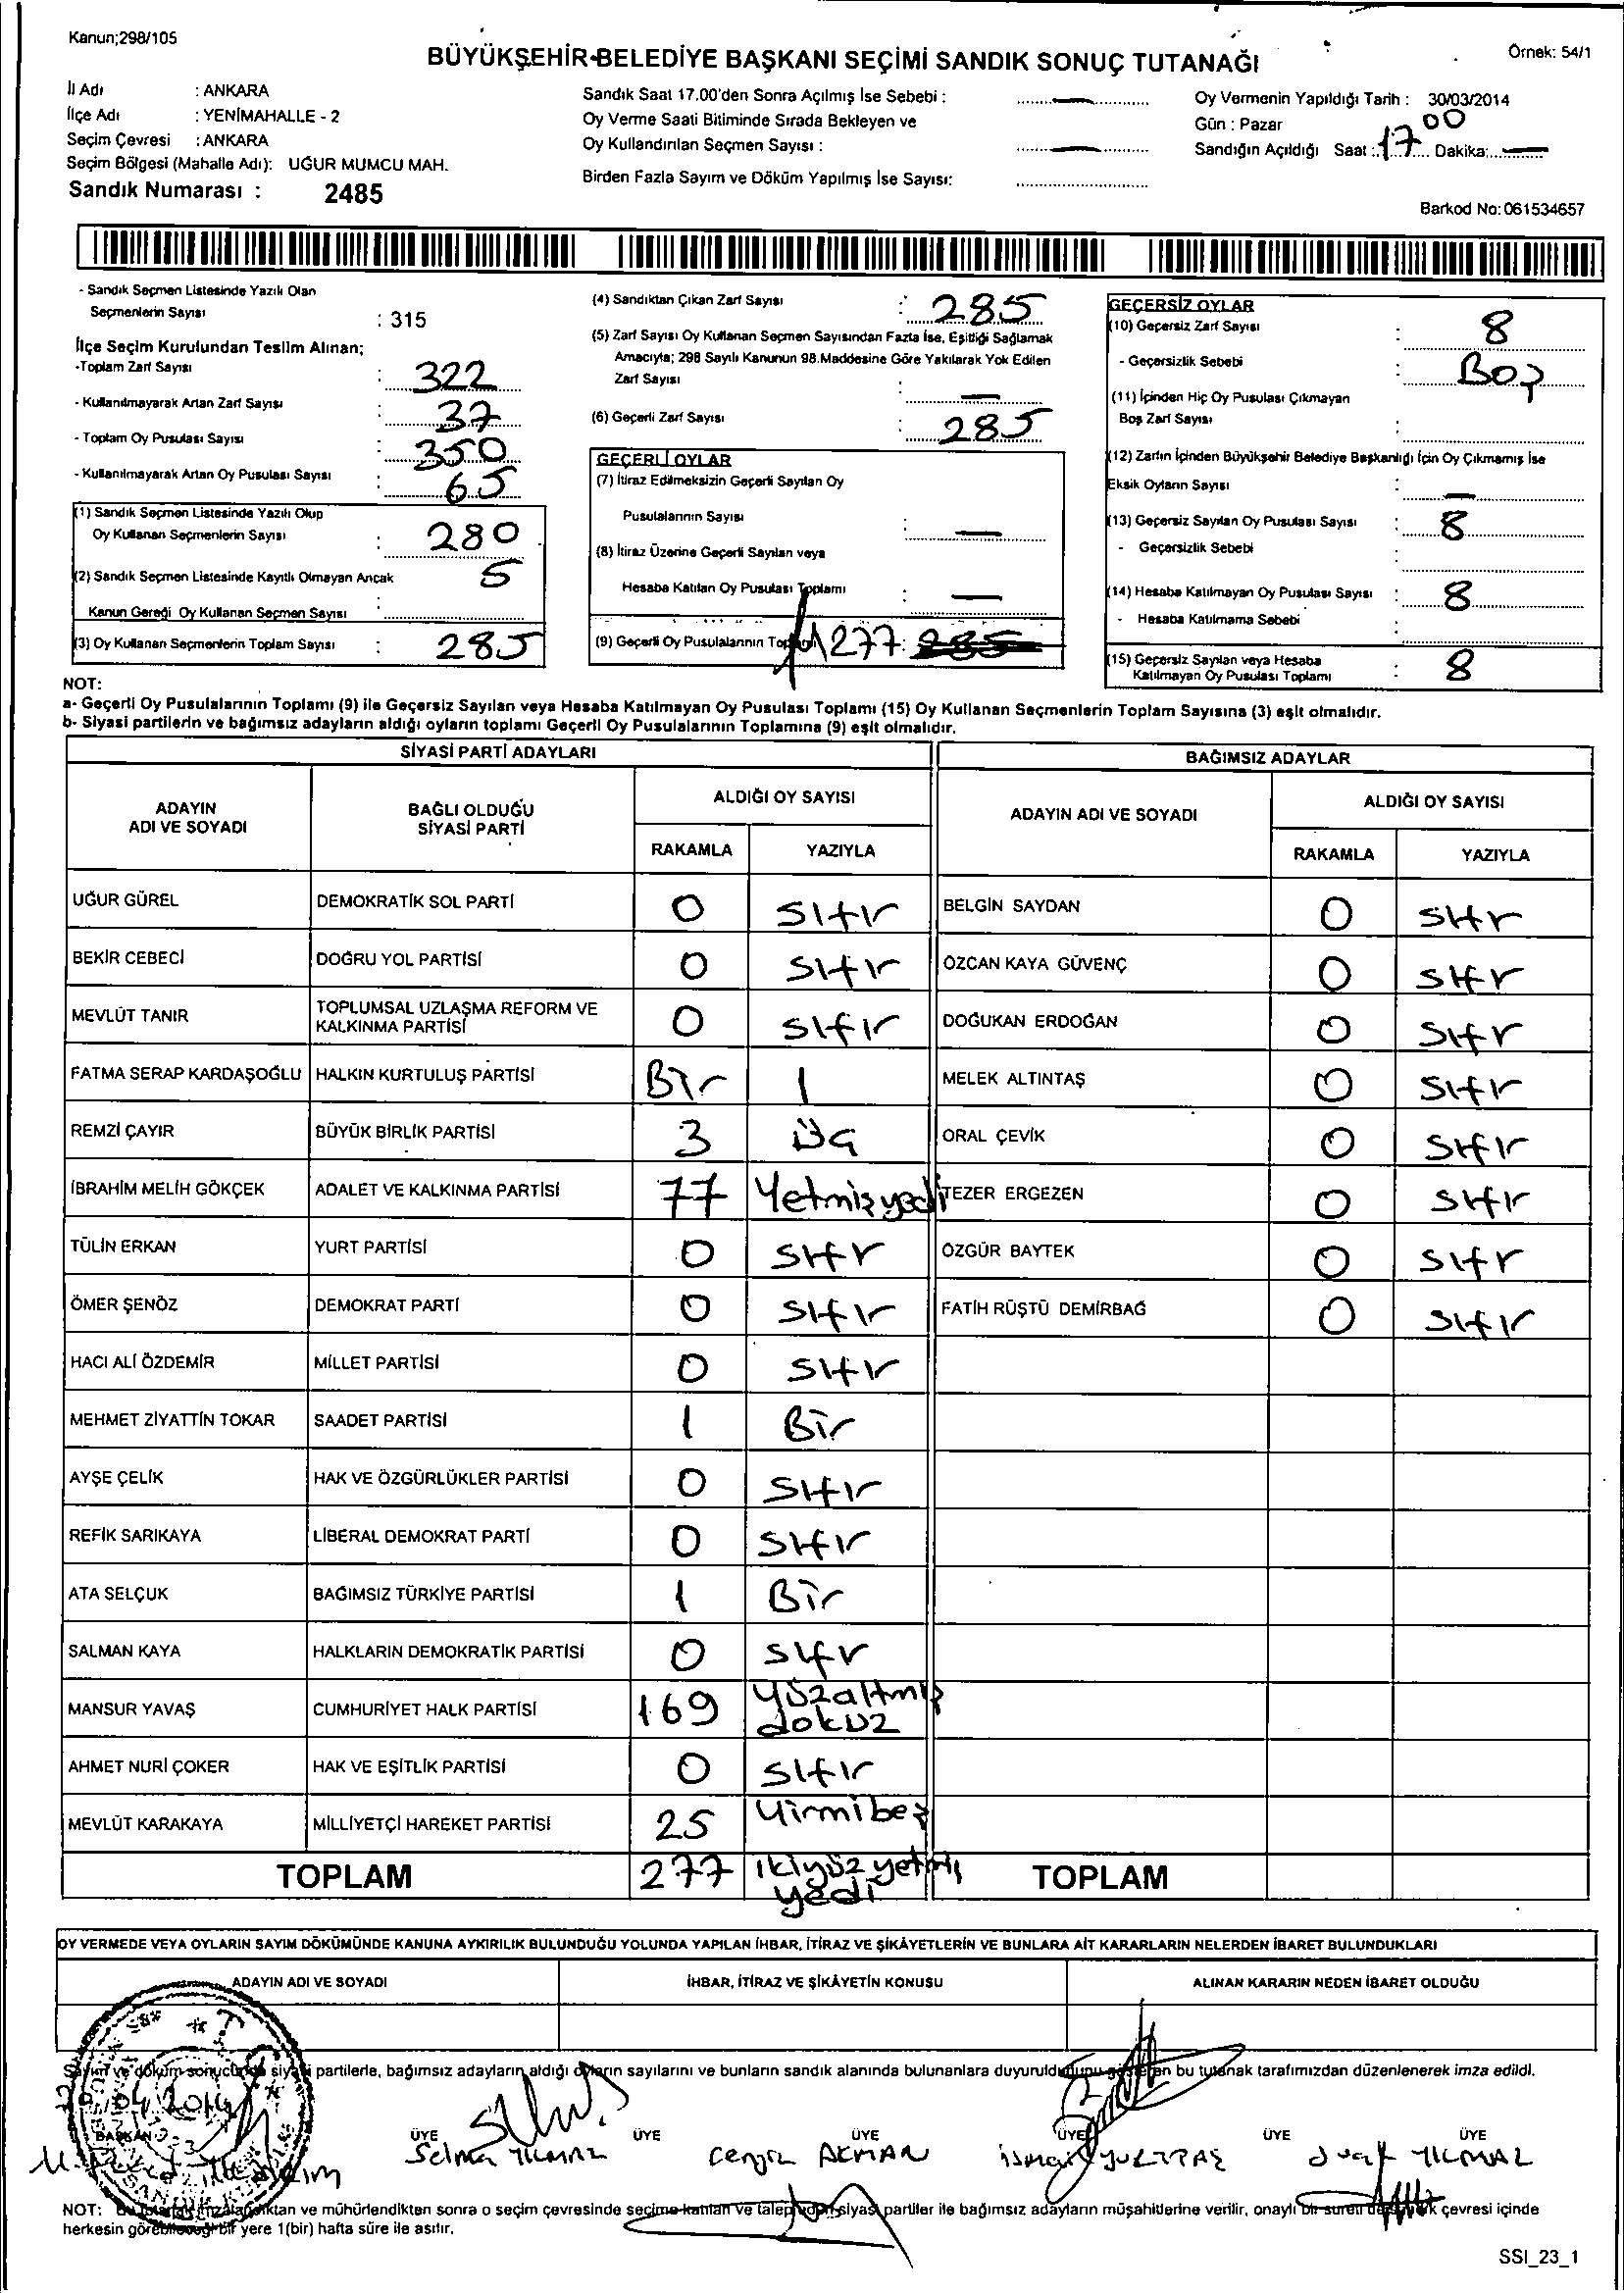 Kanun;298/105
BÜYÜKŞEHİR BELEDİYE BAŞKANI SEÇİMİ SANDIK SONUÇ TUTANAĞI
Örnek: 54/1
İl Adı : ANKARA
İlçe Adı : YENİMAHALLE - 2
Seçim Çevresi : ANKARA
Seçim Bölgesi (Mahalle Adı): UĞUR MUMCU MAH.
Sandık Numarası : 2485
Sandık Saat 17.00'den Sonra Açılmış İse Sebebi : —
Oy Verme Saati Bitiminde Sırada Bekleyen ve
Oy Kullandırılan Seçmen Sayısı : —
Birden Fazla Sayım ve Döküm Yapılmış İse Sayısı:
Oy Vermenin Yapıldığı Tarih : 30/03/2014
Gün : Pazar
Sandığın Açıldığı Saat : 17 00 Dakika: —
Barkod No: 061534657
- Sandık Seçmen Listesinde Yazılı Olan
Seçmenlerin Sayısı : 315
İlçe Seçim Kurulundan Teslim Alınan;
-Toplam Zarf Sayısı : 322
- Kullanılmayarak Artan Zarf Sayısı : 37
- Toplam Oy Pusulası Sayısı : 350
- Kullanılmayarak Artan Oy Pusulası Sayısı : 65
(1) Sandık Seçmen Listesinde Yazılı Olup
Oy Kullanan Seçmenlerin Sayısı : 280
(2) Sandık Seçmen Listesinde Kayıtlı Olmayan Ancak
Kanun Gereği Oy Kullanan Seçmen Sayısı : 5
(3) Oy Kullanan Seçmenlerin Toplam Sayısı : 285
(4) Sandıktan Çıkan Zarf Sayısı : 285
(5) Zarf Sayısı Oy Kullanan Seçmen Sayısından Fazla İse, Eşitliği Sağlamak
Amacıyla; 298 Sayılı Kanunun 98.Maddesine Göre Yakılarak Yok Edilen
Zarf Sayısı : —
(6) Geçerli Zarf Sayısı : 285
GEÇERLİ OYLAR
(7) İtiraz Edilmeksizin Geçerli Sayılan Oy
Pusulalarının Sayısı : —
(8) İtiraz Üzerine Geçerli Sayılan veya
Hesaba Katılan Oy Pusulası Toplamı : —
(9) Geçerli Oy Pusulalarının Toplamı 277 : 285
GEÇERSİZ OYLAR
(10) Geçersiz Zarf Sayısı : 8
- Geçersizlik Sebebi : Boş
(11) İçinden Hiç Oy Pusulası Çıkmayan
Boş Zarf Sayısı :
(12) Zarfın İçinden Büyükşehir Belediye Başkanlığı İçin Oy Çıkmamış İse
Eksik Oyların Sayısı : —
(13) Geçersiz Sayılan Oy Pusulası Sayısı : 8
- Geçersizlik Sebebi :
(14) Hesaba Katılmayan Oy Pusulası Sayısı : 8
- Hesaba Katılmama Sebebi :
(15) Geçersiz Sayılan veya Hesaba
Katılmayan Oy Pusulası Toplamı : 8
NOT:
a- Geçerli Oy Pusulalarının Toplamı (9) ile Geçersiz Sayılan veya Hesaba Katılmayan Oy Pusulası Toplamı (15) Oy Kullanan Seçmenlerin Toplam Sayısına (3) eşit olmalıdır.
b- Siyasi partilerin ve bağımsız adayların aldığı oyların toplamı Geçerli Oy Pusulalarının Toplamına (9) eşit olmalıdır.
SİYASİ PARTİ ADAYLARI
ADAYIN ADI VE SOYADI BAĞLI OLDUĞU SİYASİ PARTİ ALDIĞI OY SAYISI RAKAMLA YAZIYLA
UĞUR GÜREL DEMOKRATİK SOL PARTİ 0 sıfır
BEKİR CEBECİ DOĞRU YOL PARTİSİ 0 sıfır
MEVLÜT TANIR TOPLUMSAL UZLAŞMA REFORM VE KALKINMA PARTİSİ 0 sıfır
FATMA SERAP KARDAŞOĞLU HALKIN KURTULUŞ PARTİSİ Bir 1
REMZİ ÇAYIR BÜYÜK BİRLİK PARTİSİ 3 Üç
İBRAHİM MELİH GÖKÇEK ADALET VE KALKINMA PARTİSİ 77 Yetmişyedi
TÜLİN ERKAN YURT PARTİSİ 0 sıfır
ÖMER ŞENÖZ DEMOKRAT PARTİ 0 sıfır
HACI ALİ ÖZDEMİR MİLLET PARTİSİ 0 sıfır
MEHMET ZİYATTİN TOKAR SAADET PARTİSİ 1 Bir
AYŞE ÇELİK HAK VE ÖZGÜRLÜKLER PARTİSİ 0 sıfır
REFİK SARIKAYA LİBERAL DEMOKRAT PARTİ 0 sıfır
ATA SELÇUK BAĞIMSIZ TÜRKİYE PARTİSİ 1 Bir
SALMAN KAYA HALKLARIN DEMOKRATİK PARTİSİ 0 sıfır
MANSUR YAVAŞ CUMHURİYET HALK PARTİSİ 169 yüzaltmış dokuz
AHMET NURİ ÇOKER HAK VE EŞİTLİK PARTİSİ 0 sıfır
MEVLÜT KARAKAYA MİLLİYETÇİ HAREKET PARTİSİ 25 yirmibeş
TOPLAM 277 ikiyüz yetmiş yedi
BAĞIMSIZ ADAYLAR
ADAYIN ADI VE SOYADI ALDIĞI OY SAYISI RAKAMLA YAZIYLA
BELGİN SAYDAN 0 sıfır
ÖZCAN KAYA GÜVENÇ 0 sıfır
DOĞUKAN ERDOĞAN 0 sıfır
MELEK ALTINTAŞ 0 sıfır
ORAL ÇEVİK 0 sıfır
TEZER ERGEZEN 0 sıfır
ÖZGÜR BAYTEK 0 sıfır
FATİH RÜŞTÜ DEMİRBAĞ 0 sıfır
TOPLAM
OY VERMEDE VEYA OYLARIN SAYIM DÖKÜMÜNDE KANUNA AYKIRILIK BULUNDUĞU YOLUNDA YAPILAN İHBAR, İTİRAZ VE ŞİKÂYETLERİN VE BUNLARA AİT KARARLARIN NELERDEN İBARET BULUNDUKLARI
ADAYIN ADI VE SOYADI İHBAR, İTİRAZ VE ŞİKÂYETİN KONUSU ALINAN KARARIN NEDEN İBARET OLDUĞU
Sayım ve döküm sonucunda siyasi partilerle, bağımsız adayların aldığı oyların sayılarını ve bunların sandık alanında bulunanlara duyurulduğunu gösteren bu tutanak tarafımızdan düzenlenerek imza edildi.
BAŞKAN ÜYE ÜYE ÜYE ÜYE ÜYE ÜYE
Selma YILMAZ Cengiz AKMAN İsmail YURTTAŞ Suat YILMAZ
NOT: Bu tutanak imzalandıktan ve mühürlendikten sonra o seçim çevresinde seçime katılan ve talep eden siyasi partiler ile bağımsız adayların müşahitlerine verilir, onaylı bir sureti de sandık çevresi içinde
herkesin görebileceği bir yere 1(bir) hafta süre ile asılır.
SSI_23_1